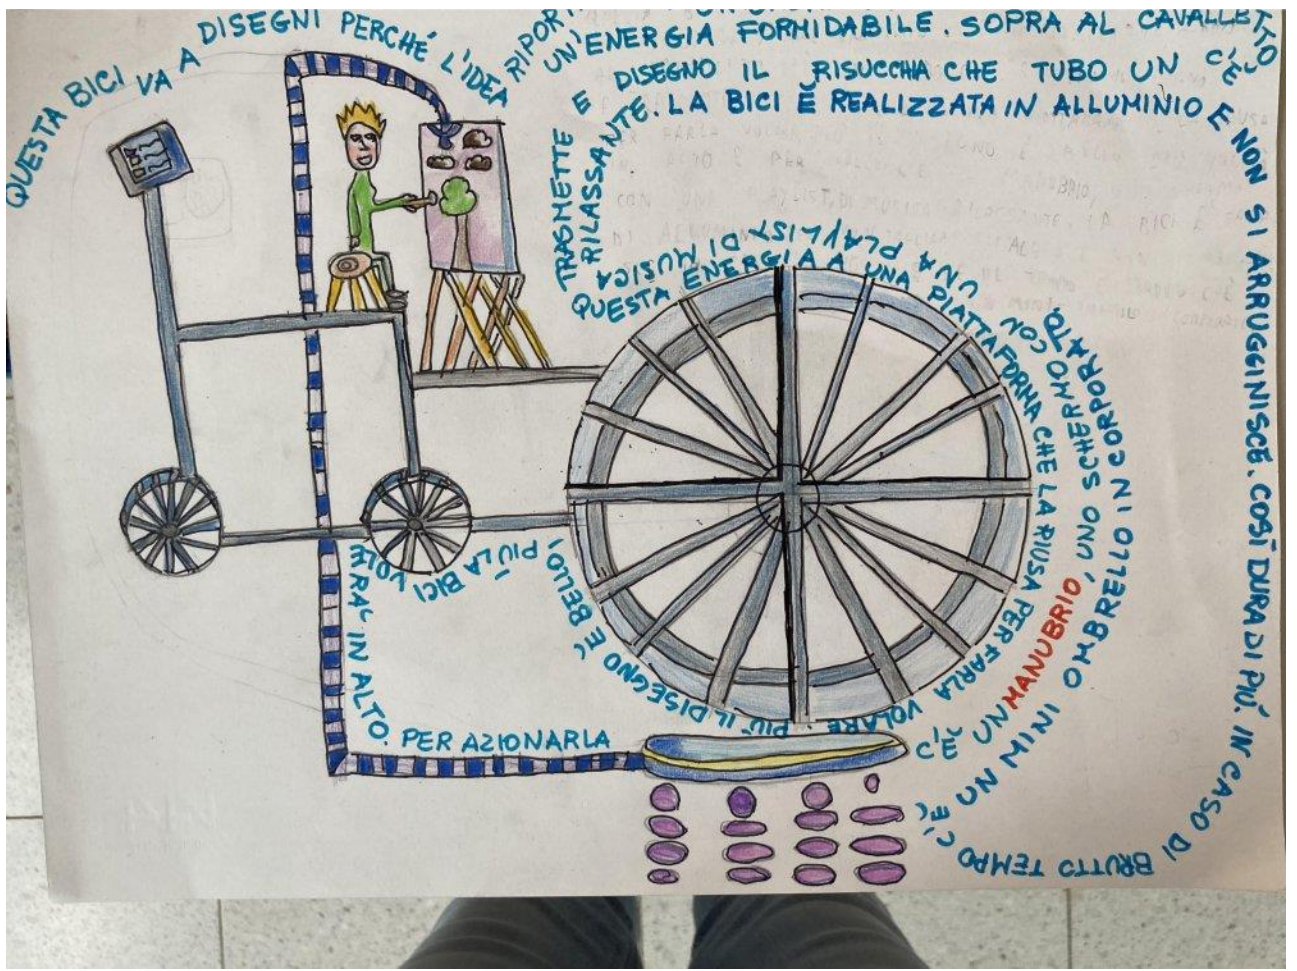 QUESTA BICI VA A DISEGNI PERCHÉ L'IDEA
UN'ENERGIA FORMIDABILE. SOPRA AL CAVALLETTO
C'È UN TUBO CHE RISUCCHIA IL DISEGNO
E TRASMETTE
QUESTA ENERGIA A UNA PIATTAFORMA CHE LA RIUSA PER FARLA VOLARE. PIÙ IL DISEGNO È BELLO,
PIÙ LA BICI VOLERA' IN ALTO. PER AZIONARLA
C'È UN MANUBRIO, UNO SCHERMO CON
UNA PLAYLIST DI MUSICA
RILASSANTE. LA BICI È REALIZZATA IN ALLUMINIO
E NON SI ARRUGGINISCE. COSÌ DURA DI PIÚ. IN CASO DI BRUTTO TEMPO
C'È UN MINI OMBRELLO INCORPORATO.